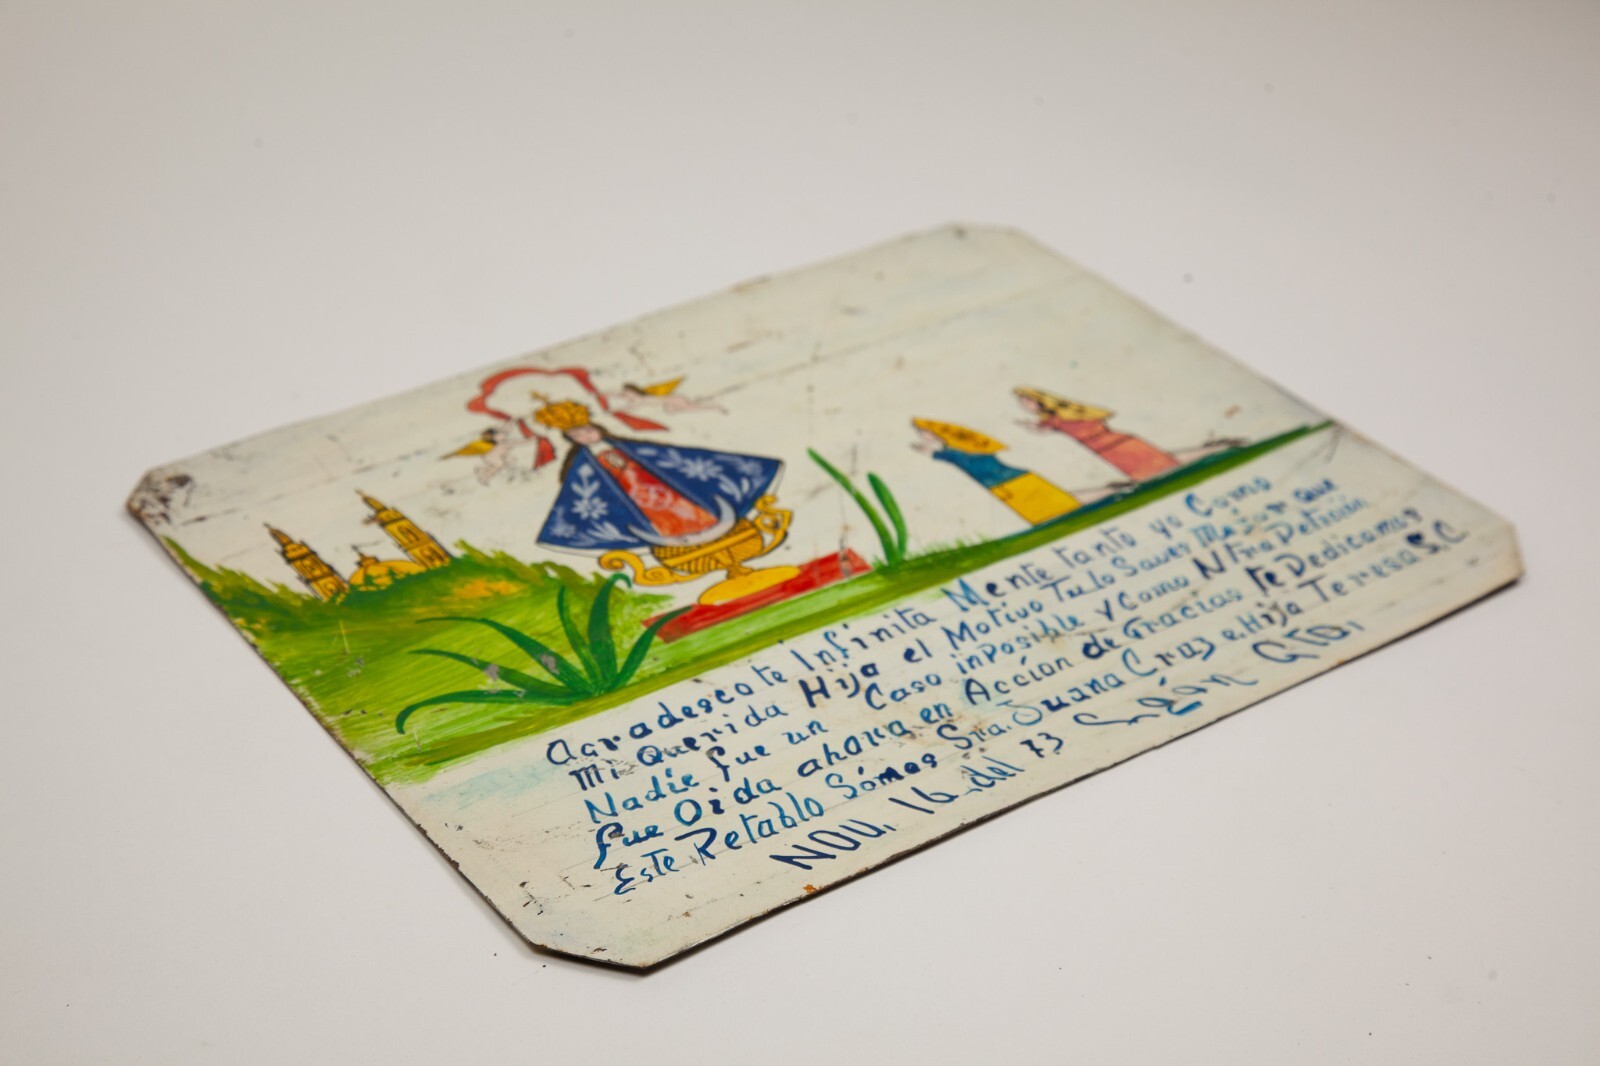 Agradescote Infinita Mente tanto yo Como
Mi Querida Hija el Motivo Tu lo Saves Mejor que
Nadie fue un Caso inposible Y Como Ntra Petición
fue Oida ahora en Acción de Gracias te Dedicamos
Este Retablo Sómos Sra. Juana Cruz e Hija Teresa S. C
NOV. 16 del 73 GTO.